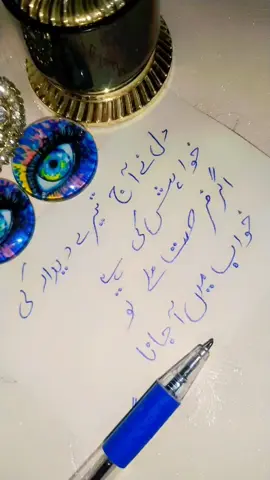 دل نے آج تیرے دیدار کی
خواہش کی ہے
اگر فرصت ملے تو
خواب میں آ جانا